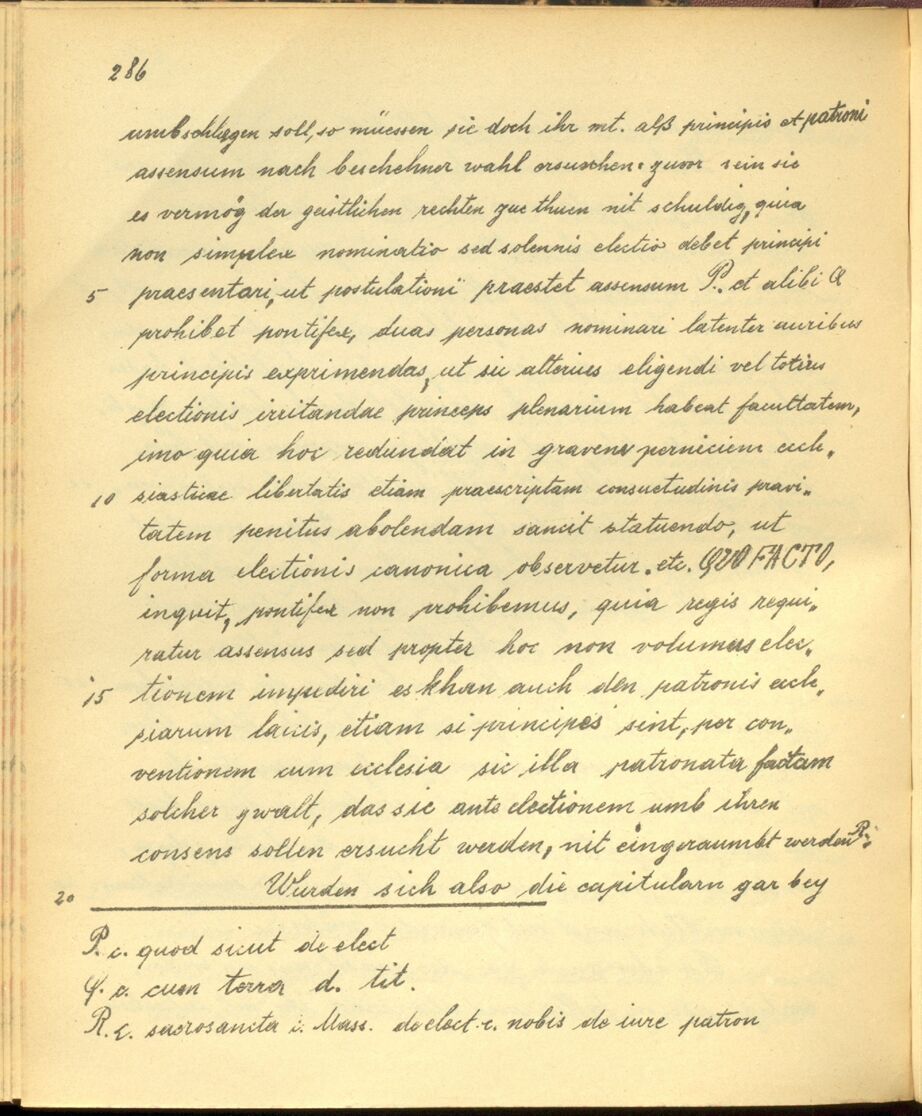 286
umbschlagen soll, so müessen sie doch ihr mt. alß principis et patroni
assensum nach beschehner wahl ersuechen. zuvor sein sie
es vermög der geistlichen rechten zue thuen nit schuldig, quia
non simplex nominatio sed solennis electio debet principi
5 praesentari, ut postulationi praestet assensum P. et alibi Q
prohibet pontifex, duas personas nominari latenter auribus
principis exprimendas, ut sic alterius eligendi vel totius
electionis irritandae princeps plenarium habeat facultatem,
imo quia hoc redundat in gravem perniciem eccle„
10 siasticae libertatis etiam praescriptam consuetudinis pravi„
tatem penitus abolendam sancit statuendo, ut
forma electionis canonica observetur. etc. QUO FACTO,
inquit, pontifex non prohibemus, quia regis requi„
ratur assensus sed propter hoc non volumus elec„
15 tionem impediri es khan auch den patronis eccle„
siarum laicis, etiam si principes sint, per con„
ventionem cum ecclesia sic illa patronata factam
solcher gwalt, das sie ante electionem umb ihren
consens sollen ersucht werden, nit eingeraumbt werden R.
20 Wurden sich also die capitularn gar bey
P. c. quod sicut de elect
Q. c. cum terra d. tit.
R. c. sacrosancta i. Mass. de elect. c. nobis de iure patron